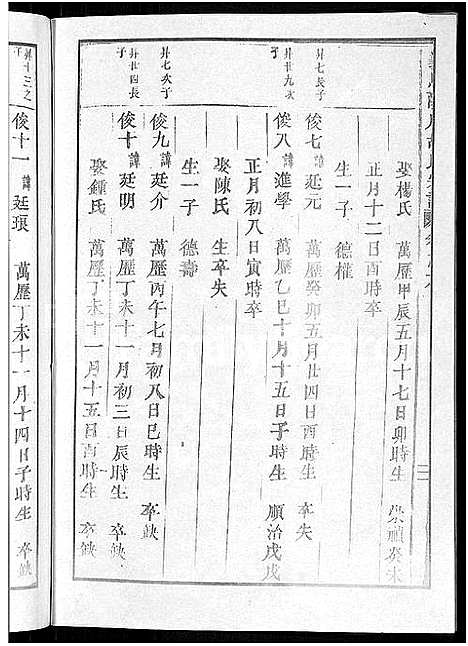 娶楊氏 萬歷甲辰五月十七日卯時生 崇禎癸未
正月十二日酉時卒
生一子 德權
廾七長子 俊七 諱廷元 萬歷癸卯五月廿四日酉時生 卒失
廾廿九次子 俊八 諱進學 萬歷乙巳十月十五日子時生 順治戊戌
正月初八日寅時卒
娶陳氏 生卒失
生一子 德壽
廾七次子 俊九 諱廷介 萬歷丙午七月初八日巳時生 卒缺
廾廿四長子 俊十 諱廷明 萬歷丁未十一月初三日辰時生 卒缺
娶鍾氏 萬歷丁未十一月十五日酉時生 卒缺
廾十三之子 俊十一 諱廷琅 萬歷丁未十一月十四日子時生 卒缺